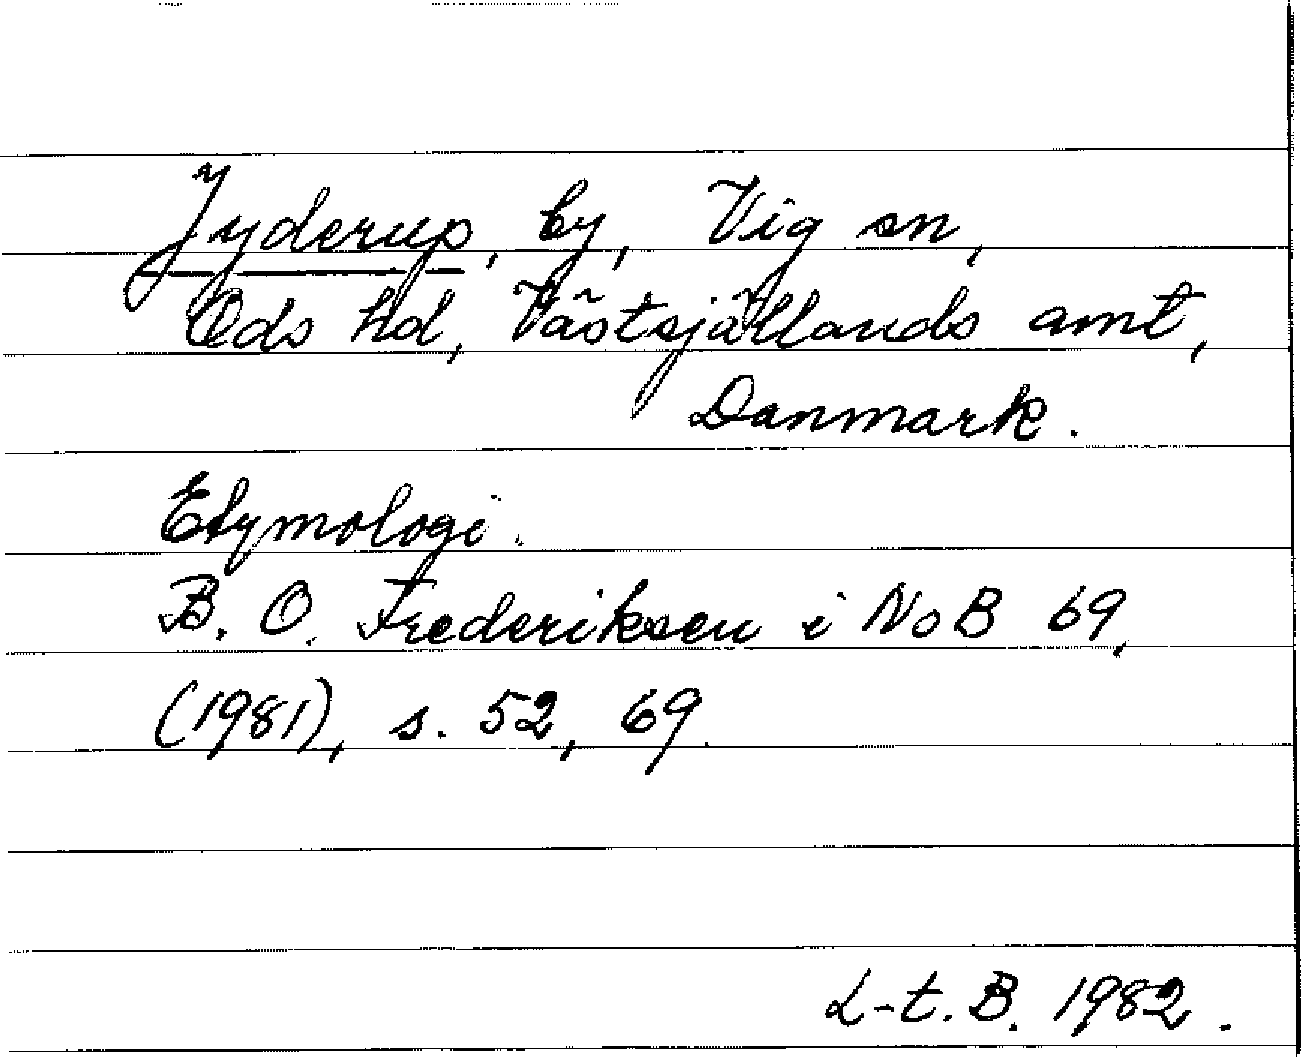 Jyderup, by, Vig sn,
Ods hd, Västsjällands amt,
Danmark.
Etymologi.
B. O. Frederiksen i NoB 69,
(1981), s. 52, 69.
L-t. B. 1982.